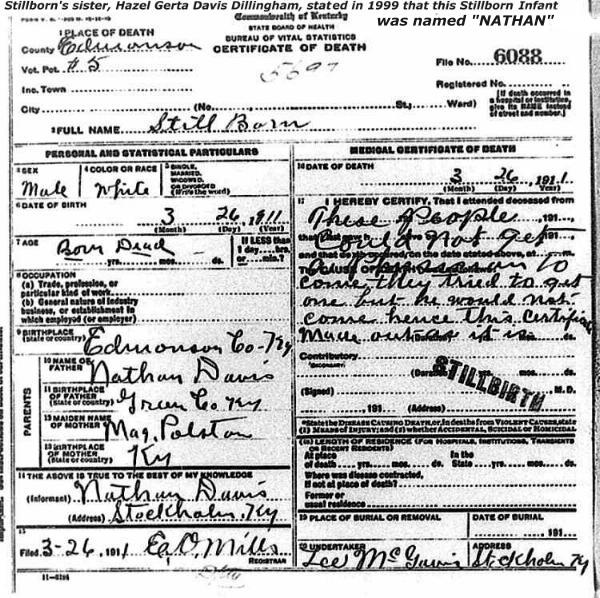 Stillborn's sister, Hazel Gerta Davis Dillingham, stated in 1999 that this Stillborn Infant
was named "NATHAN"
1 PLACE OF DEATH
County Edmonson
Vot. Pct. #5
Inc. Town
City (No. St.; Ward)
Commonwealth of Kentucky
STATE BOARD OF HEALTH
BUREAU OF VITAL STATISTICS
CERTIFICATE OF DEATH
5697
File No. 6088
Registered No.
[If death occurred in a hospital or institution, give its NAME instead of street and number.]
2 FULL NAME Still Born
PERSONAL AND STATISTICAL PARTICULARS
3 SEX Male
4 COLOR OR RACE White
5 SINGLE, MARRIED, WIDOWED, OR DIVORCED (Write the word)
6 DATE OF BIRTH
3 26 1911
(Month) (Day) (Year)
7 AGE Born Dead
yrs. mos. ds.
If LESS than 1 day....hrs. or....min.?
8 OCCUPATION
(a) Trade, profession, or particular kind of work
(b) General nature of industry business, or establishment in which employed (or employer)
9 BIRTHPLACE (State or country) Edmonson Co-Ky
PARENTS
10 NAME OF FATHER Nathan Davis
11 BIRTHPLACE OF FATHER (State or country) Green Co. Ky
12 MAIDEN NAME OF MOTHER Mag. Polston
13 BIRTHPLACE OF MOTHER (State or country) Ky
14 THE ABOVE IS TRUE TO THE BEST OF MY KNOWLEDGE
(Informant) Nathan Davis
(Address) Stockholm, Ky
15
Filed 3-26, 1911 Ea. O. Mills
REGISTRAR
11-6184
MEDICAL CERTIFICATE OF DEATH
16 DATE OF DEATH
3 26 1911
(Month) (Day) (Year)
17 I HEREBY CERTIFY, That I attended deceased from
These People
Could Not Get
to
come, they tried to get
one but he would not
come hence this certificate
Made out as it is
Contributory
(SECONDARY)
(Signed) M.D.
, 191 (Address)
STILLBIRTH
*State the DISEASE CAUSING DEATH, or, in deaths from VIOLENT CAUSES, state (1) MEANS OF INJURY; and (2) whether ACCIDENTAL, SUICIDAL OR HOMICIDAL
18 LENGTH OF RESIDENCE (FOR HOSPITALS, INSTITUTIONS, TRANSIENTS OR RECENT RESIDENTS)
At place of death yrs. mos. ds. In the State yrs. mos. ds.
Where was disease contracted, If not at place of death?
Former or usual residence
19 PLACE OF BURIAL OR REMOVAL
DATE OF BURIAL
191
20 UNDERTAKER Lee
ADDRESS Stockholm Ky